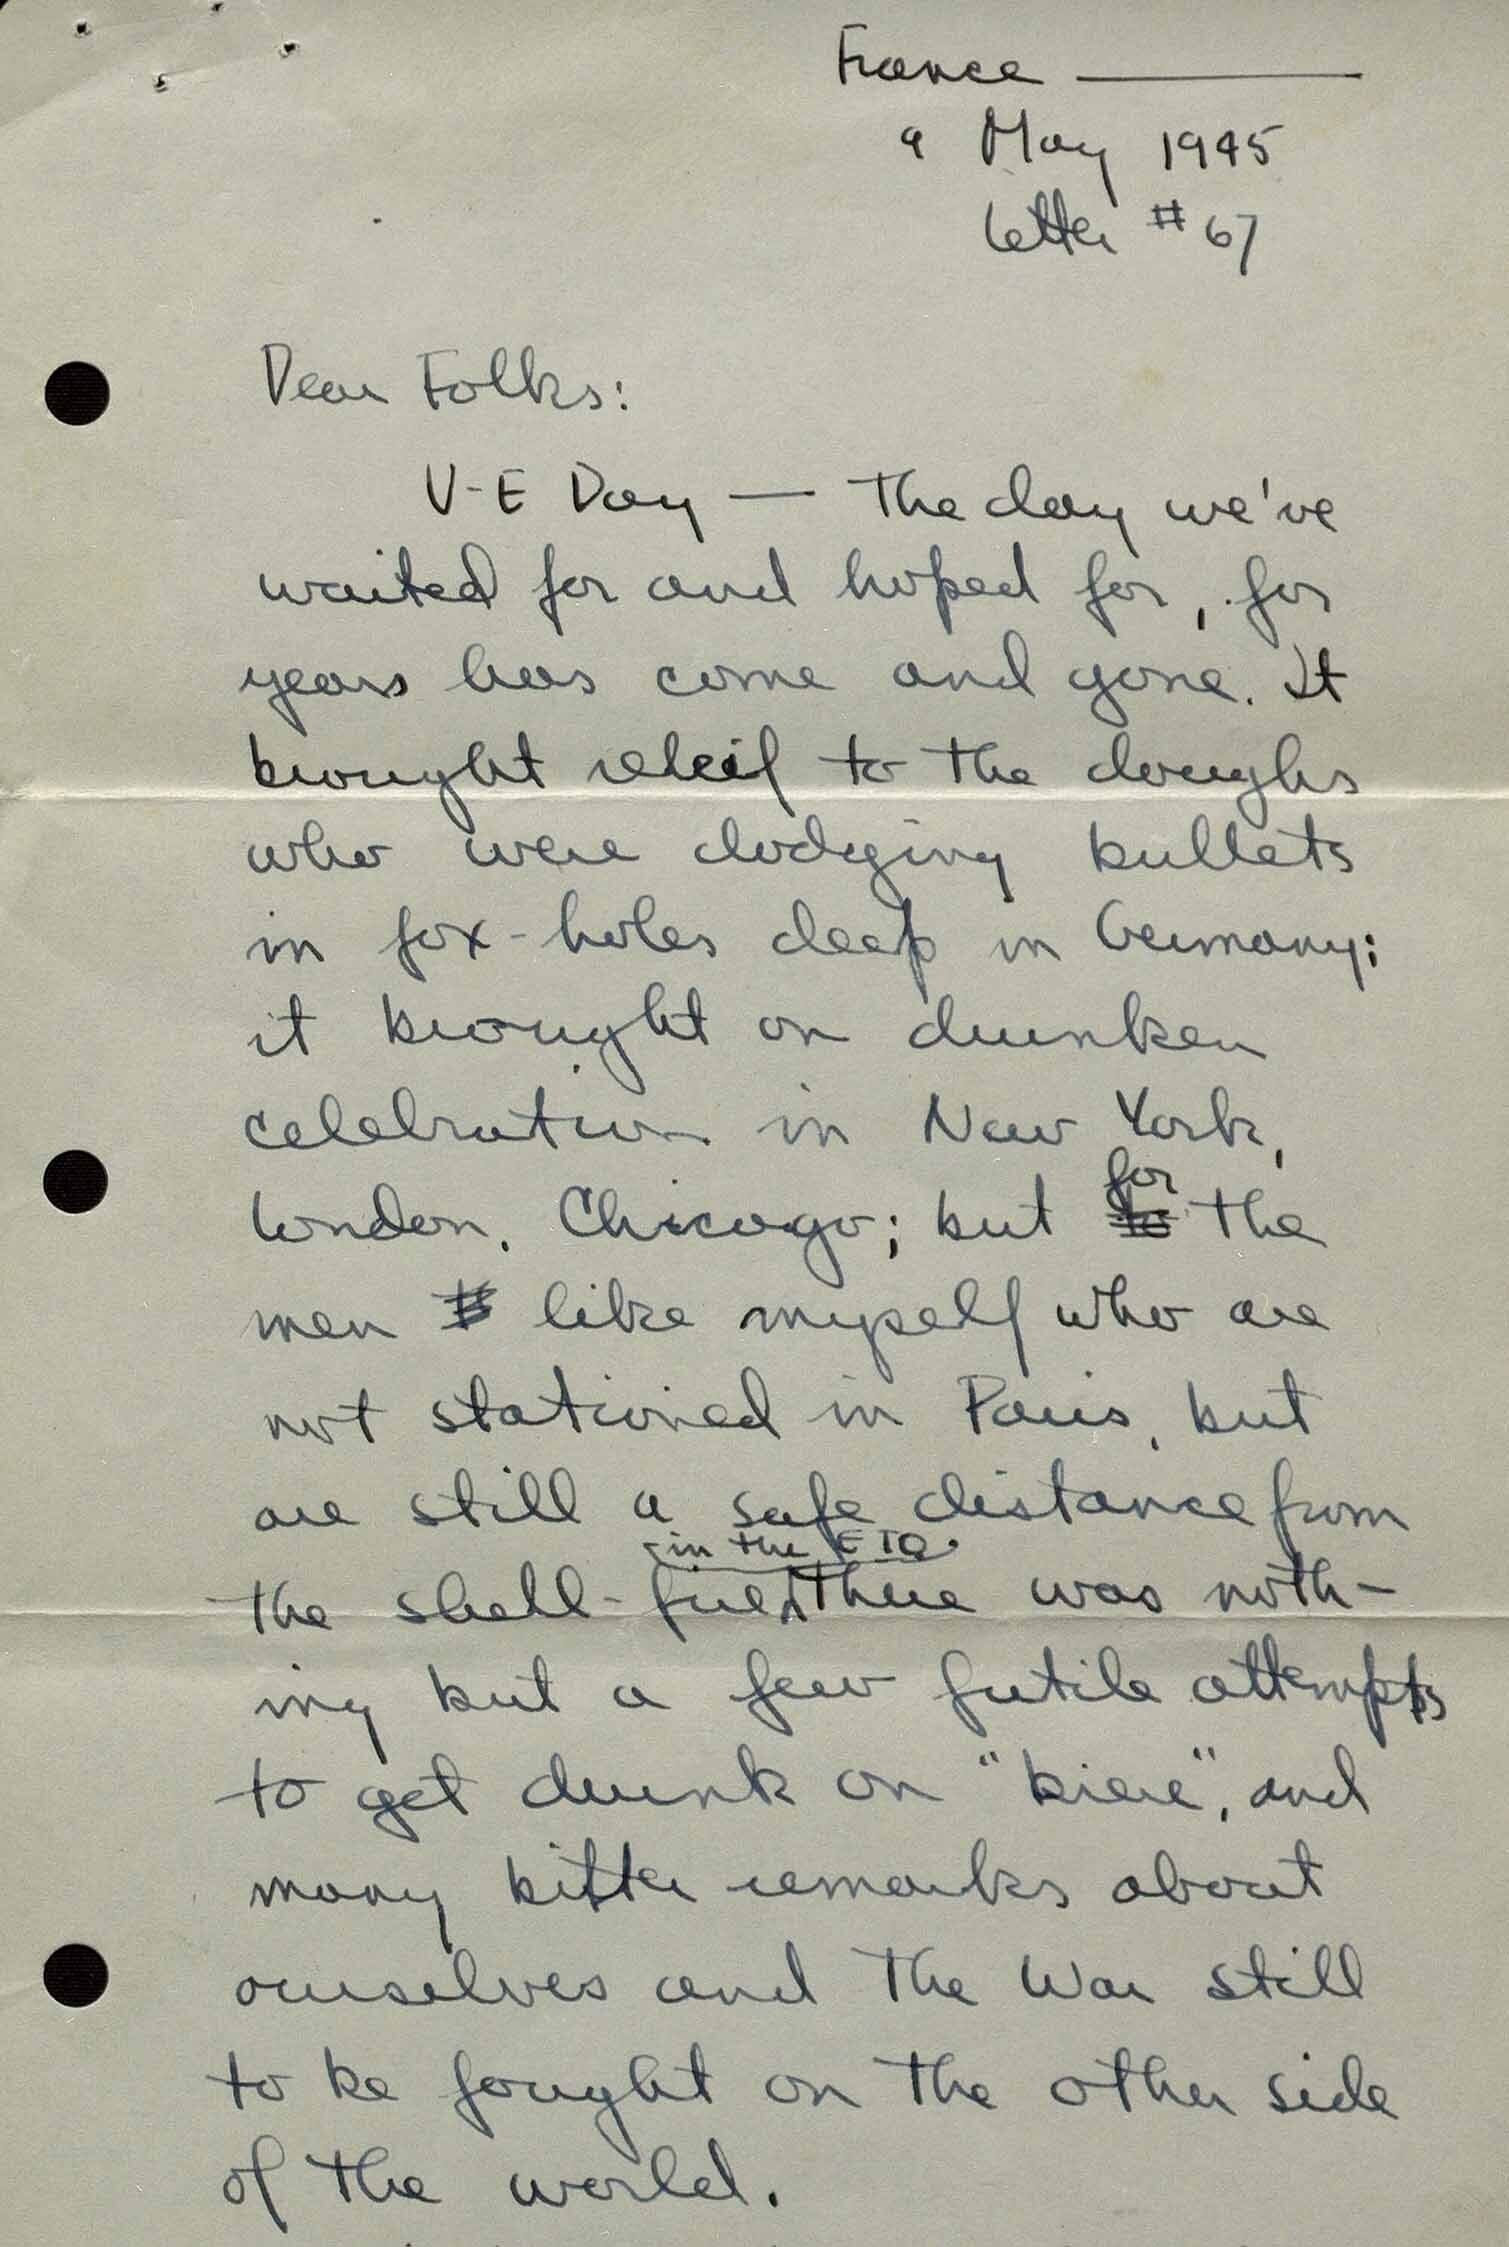 France ———
9 May 1945
Letter #67
Dear Folks:
V-E Day — the day we've
waited for and hoped for, for
years has come and gone. It
brought releif to the doughs
who were dodging bullets
in fox-holes deep in Germany;
it brought on drunken
celebration in New York,
London, Chicago; but for the
men like myself who are
not stationed in Paris, but
are still a safe distance from
in the ETO
the shell-fire, there was noth-
ing but a few futile attempts
to get drunk on "biere", and
many bitter remarks about
ourselves and the War still
to be fought on the other side
of the world.